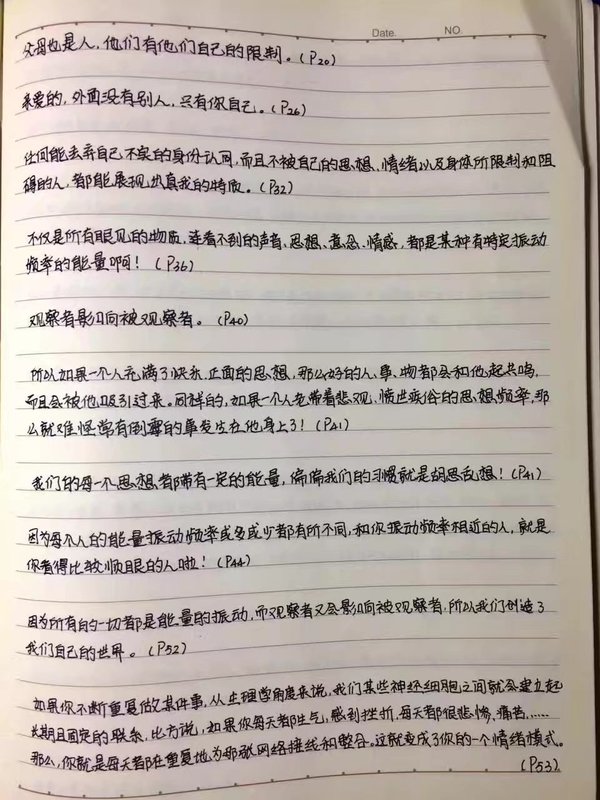 Date. NO
父母也是人,他们有他们自己的限制。(P20)
亲爱的,外面没有别人,只有你自己。(P26)
任何能丢弃自己不实的身份认同,而且不被自己的思想、情绪以及身体所限制和阻
碍的人,都能展现出真我的特质。(P32)
不仅是所有眼见的物质,连看不到的声音、思想、意念、情感,都是某种有特定振动
频率的能量啊!(P36)
观察者影响被观察者。(P40)
所以如果一个人充满了快乐、正面的思想,那么好的人、事、物都会和他起共鸣,
而且会被他吸引过来。同样的,如果一个人老带着悲观、愤世疾俗的思想频率,那
么就难怪常有倒霉的事发生在他身上了!(P41)
我们的每一个思想都带有一定的能量,偏偏我们的习惯就是胡思乱想!(P41)
因为每个人的能量振动频率或多或少都有所不同,和你振动频率相近的人,就是
你看得比较顺眼的人啦!(P44)
因为所有的一切都是能量的振动,而观察者又会影响被观察者,所以我们创造了
我们自己的世界。(P52)
如果你不断重复做某件事,从生理学角度来说,我们某些神经细胞之间就会建立起
长期且固定的联系,比方说,如果你每天都生气,感到挫折,每天都很悲惨、痛苦......
那么,你就是每天都在重复地为那张网络接线和整合。这就变成了你的一个情绪模式。
(P53)